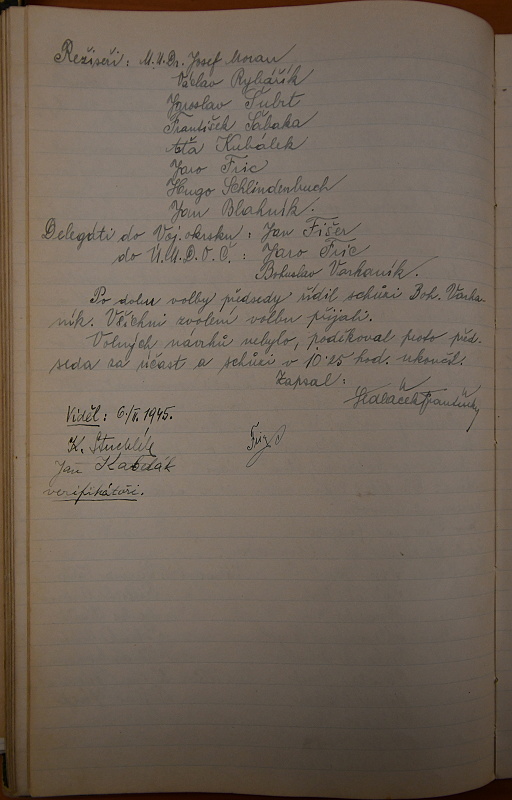 Režiséři: M.U.Dr. Josef Moran
Václav Rybářík
Jaroslav Šubrt
František Sabaka
Ata Kubálek
Jaro Fric
Hugo Schlindenbuch
Jan Blahník.
Delegáti do Voj. okrsku: Jan Fišer
do Ú.M.D.O.Č.: Jaro Fric
Bohuslav Varhaník.
Po dobu volby předsedy řídil schůzi Boh. Varha-
ník. Všichni zvolení volbu přijali.
Volných návrhů nebylo, poděkoval proto před-
seda za účast a schůzi v 10.25 hod. ukončil.
Zapsal:
Sedláček František
Viděl: 6/II. 1945.
K. Stuchlík
Jan Kabelák
verifikátoři.